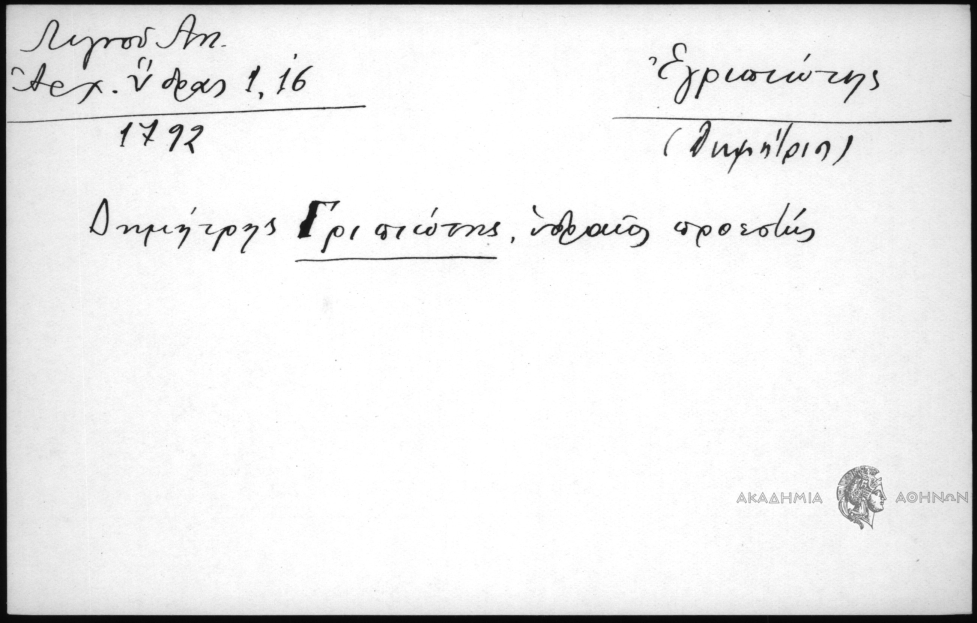 Λιγνοῦ Αντ.
Ἀρχ. Ὕδρας 1, 16
1792
Ἐγριπιώτης
(Δημήτρης)
Δημήτρης Γριπιώτης, ὑδραῖος προεστώς
ΑΚΑΔΗΜΙΑ ΑΘΗΝΩΝ